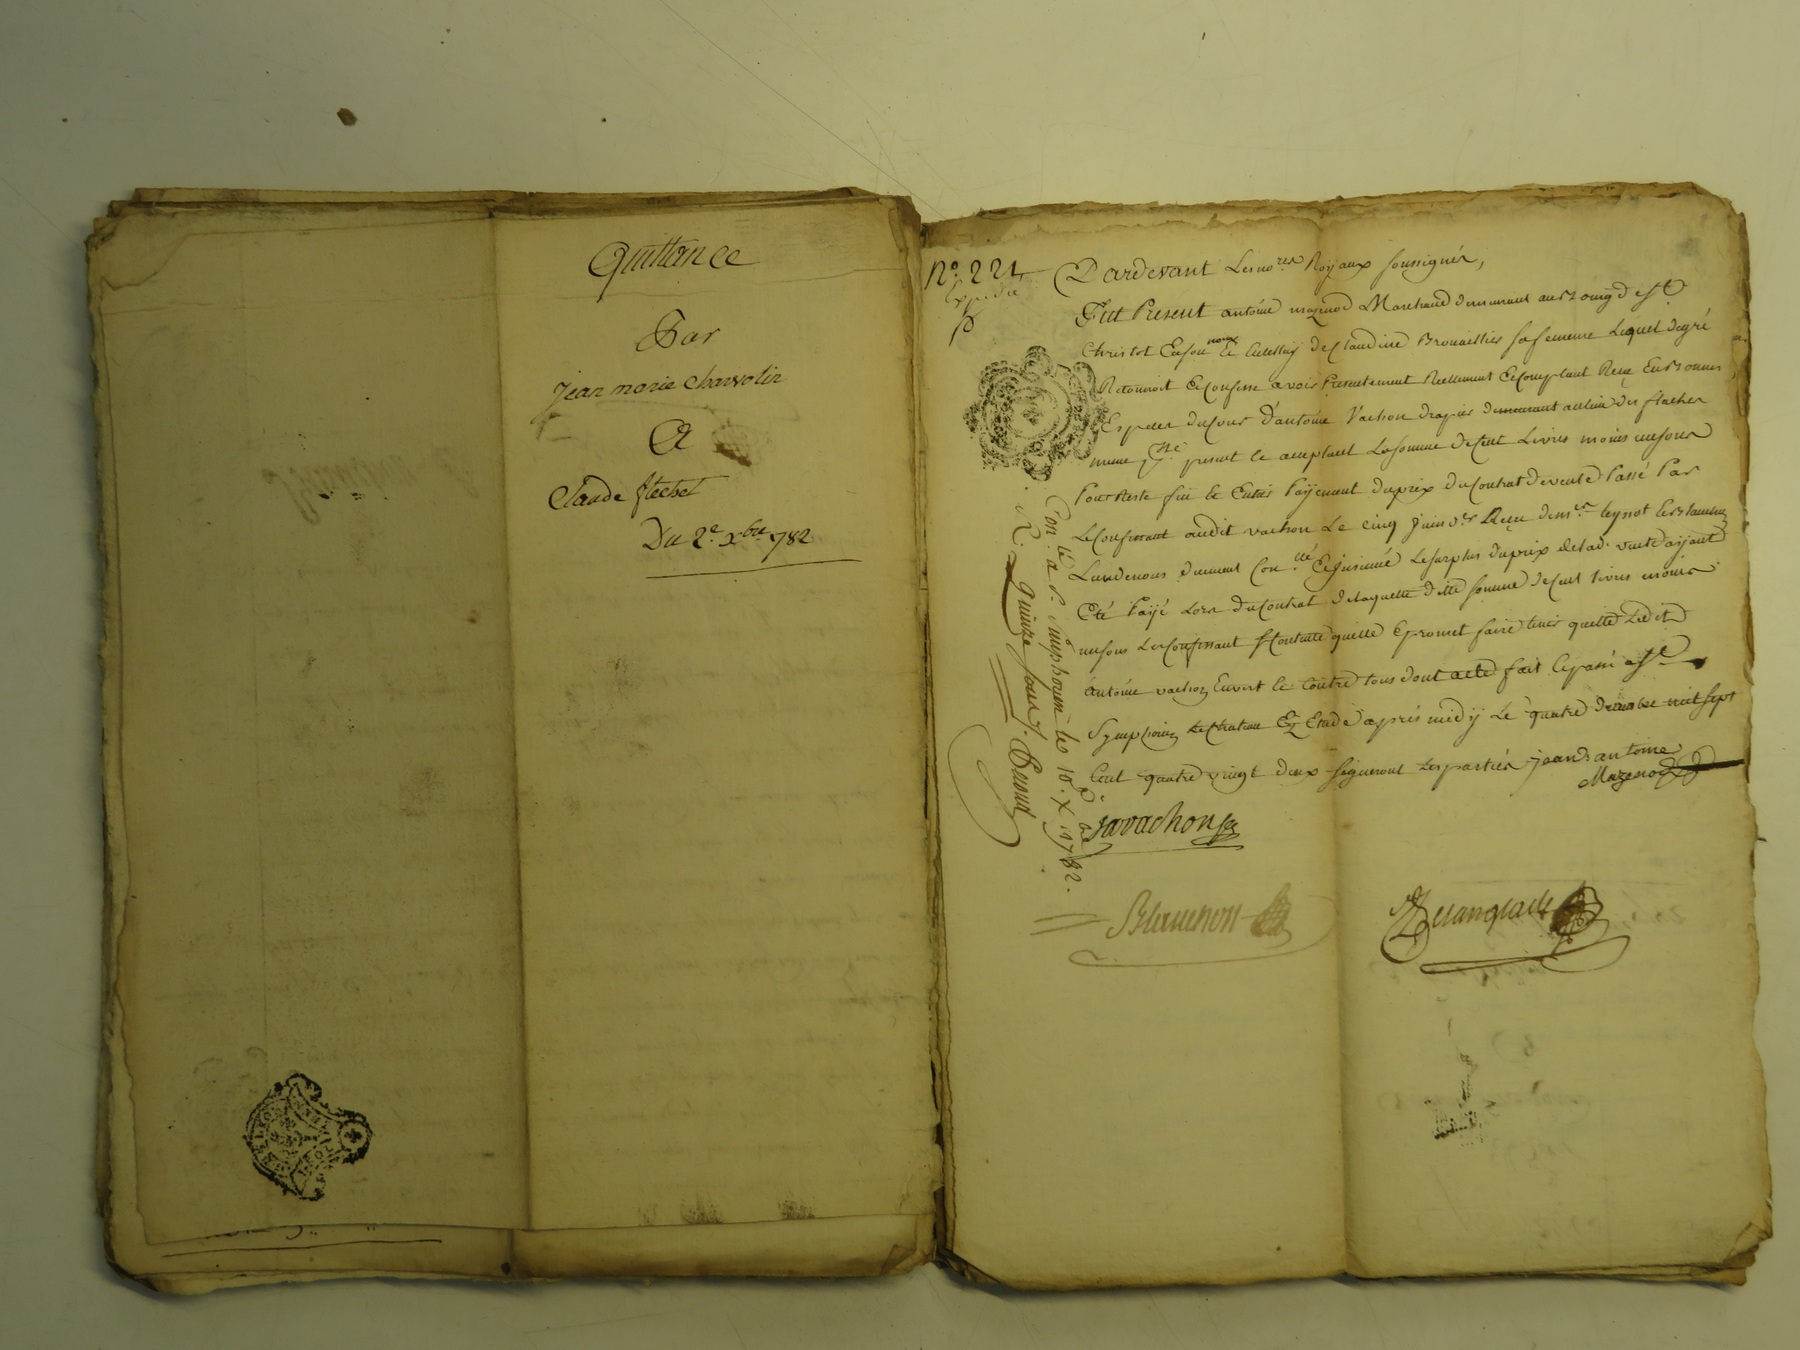 Quittance
Par
jean marie charvolin
A
Claude flechet
Du 2e xbre 782
No. 221
Expedié
Pardevant Les nores Royaux soussignés,
Fut Present antoine mazenod Marchand demeurant au Bourg de St.
Christot En son nom Et de Claudine Brouallier sa femme Lequel de gré
Reconnoit Et Confesse avoir Presentement Reellement Et Comptant Reçu En Bonnes
Especes du Cours d'antoine Vachon drapier demeurant au lieu des flaches
meme present Et acceptant La somme de Cent Livres moins un sous
Pour Reste fin Et Entier Payement du prix du Contrat de vente Passé Par
Le Confessant audit vachon Le cinq juin der Reçu de me
L'un de nous duement Conllé Et Insinué Le surplus du prix de lad. vente ayant
Eté Payé Lors du Contrat de laquelle ditte somme de Cent livres moins
un sous Le Confessant Contente quitte Et promet faire tenir quitte Ledit
Antoine vachon Envert Et Contre tous dont acte fait Et passé a St.
Symphorien Le Chateau En Etude après midy Le quatre decembre mil sept
Cent quatre vingt deux signeront Les parties jean antoine
Mazenod
javachon
Blanchon
Con.lé a St. Simphorien le 10. Xbre 1782.
R. quinze sous